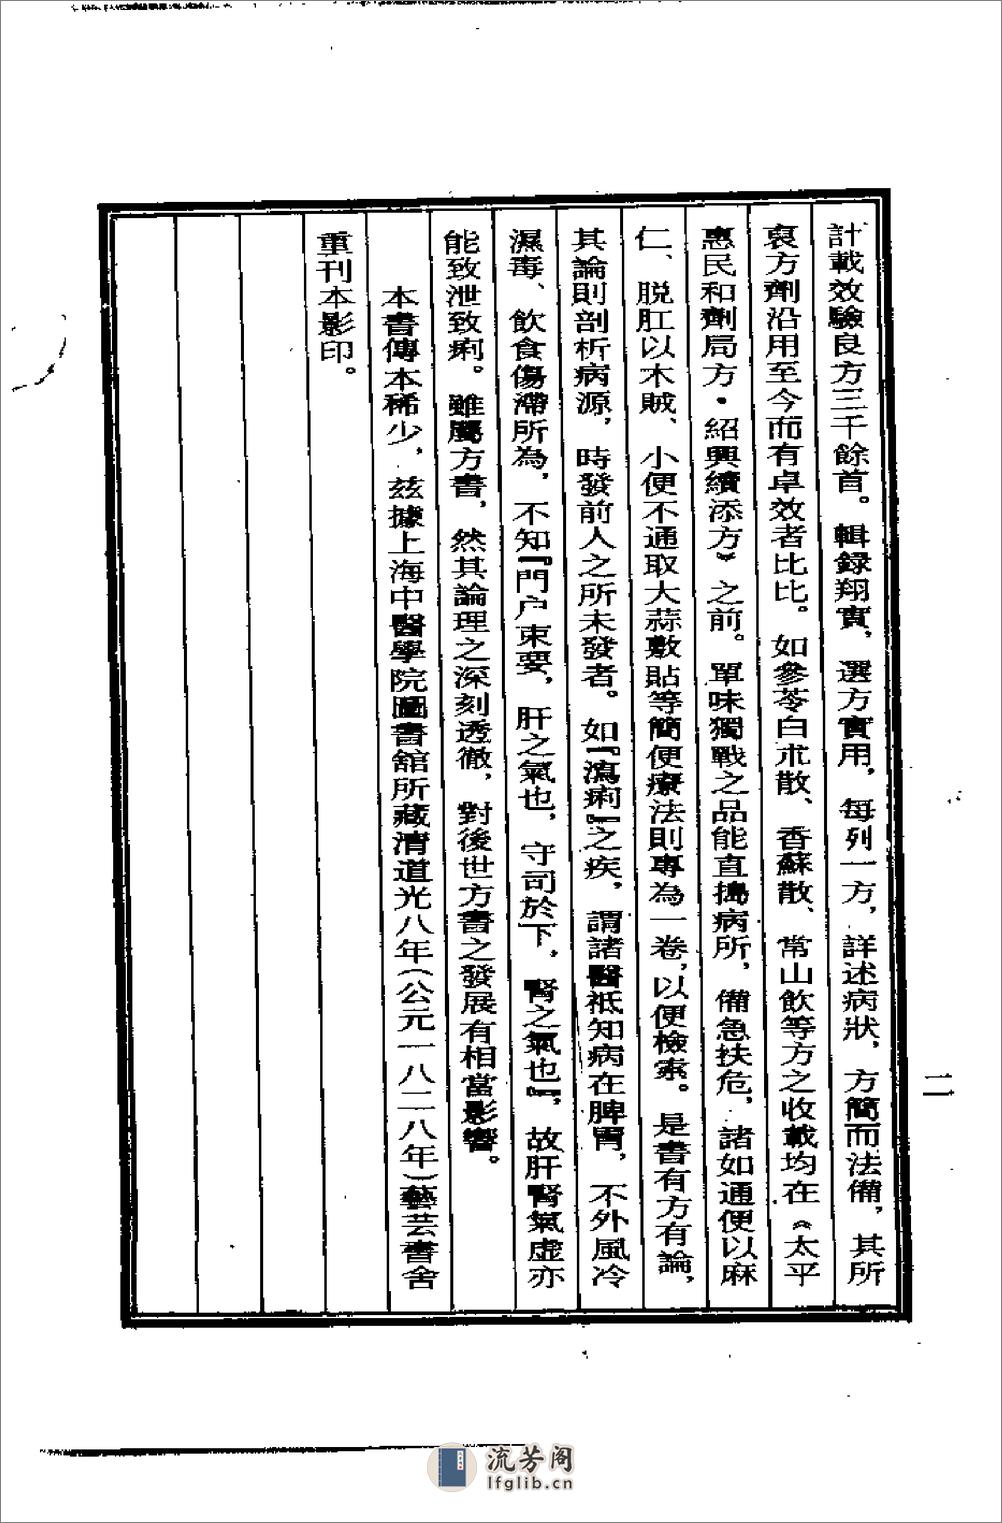 計載效驗良方三千餘首。輯録翔實，選方實用，每列一方，詳述病狀，方簡而法備，其所
裒方劑沿用至今而有卓效者比比。如參苓白朮散、香蘇散、常山飲等方之收載均在《太平
惠民和劑局方·紹興續添方》之前。單味獨戰之品能直搗病所，備急扶危，諸如通便以麻
仁、脱肛以木賊、小便不通取大蒜敷貼等簡便療法則專為一卷，以便檢索。是書有方有論，
其論則剖析病源，時發前人之所未發者。如『瀉痢』之疾，謂諸醫衹知病在脾胃，不外風冷
濕毒、飲食傷滯所為，不知『門户束要，肝之氣也，守司於下，腎之氣也』，故肝腎氣虛亦
能致泄致痢。雖屬方書，然其論理之深刻透徹，對後世方書之發展有相當影響。
本書傳本稀少，兹據上海中醫學院圖書舘所藏清道光八年（公元一八二八年）藝芸書舍
重刊本影印。
二
流芳阁
lfglib.cn